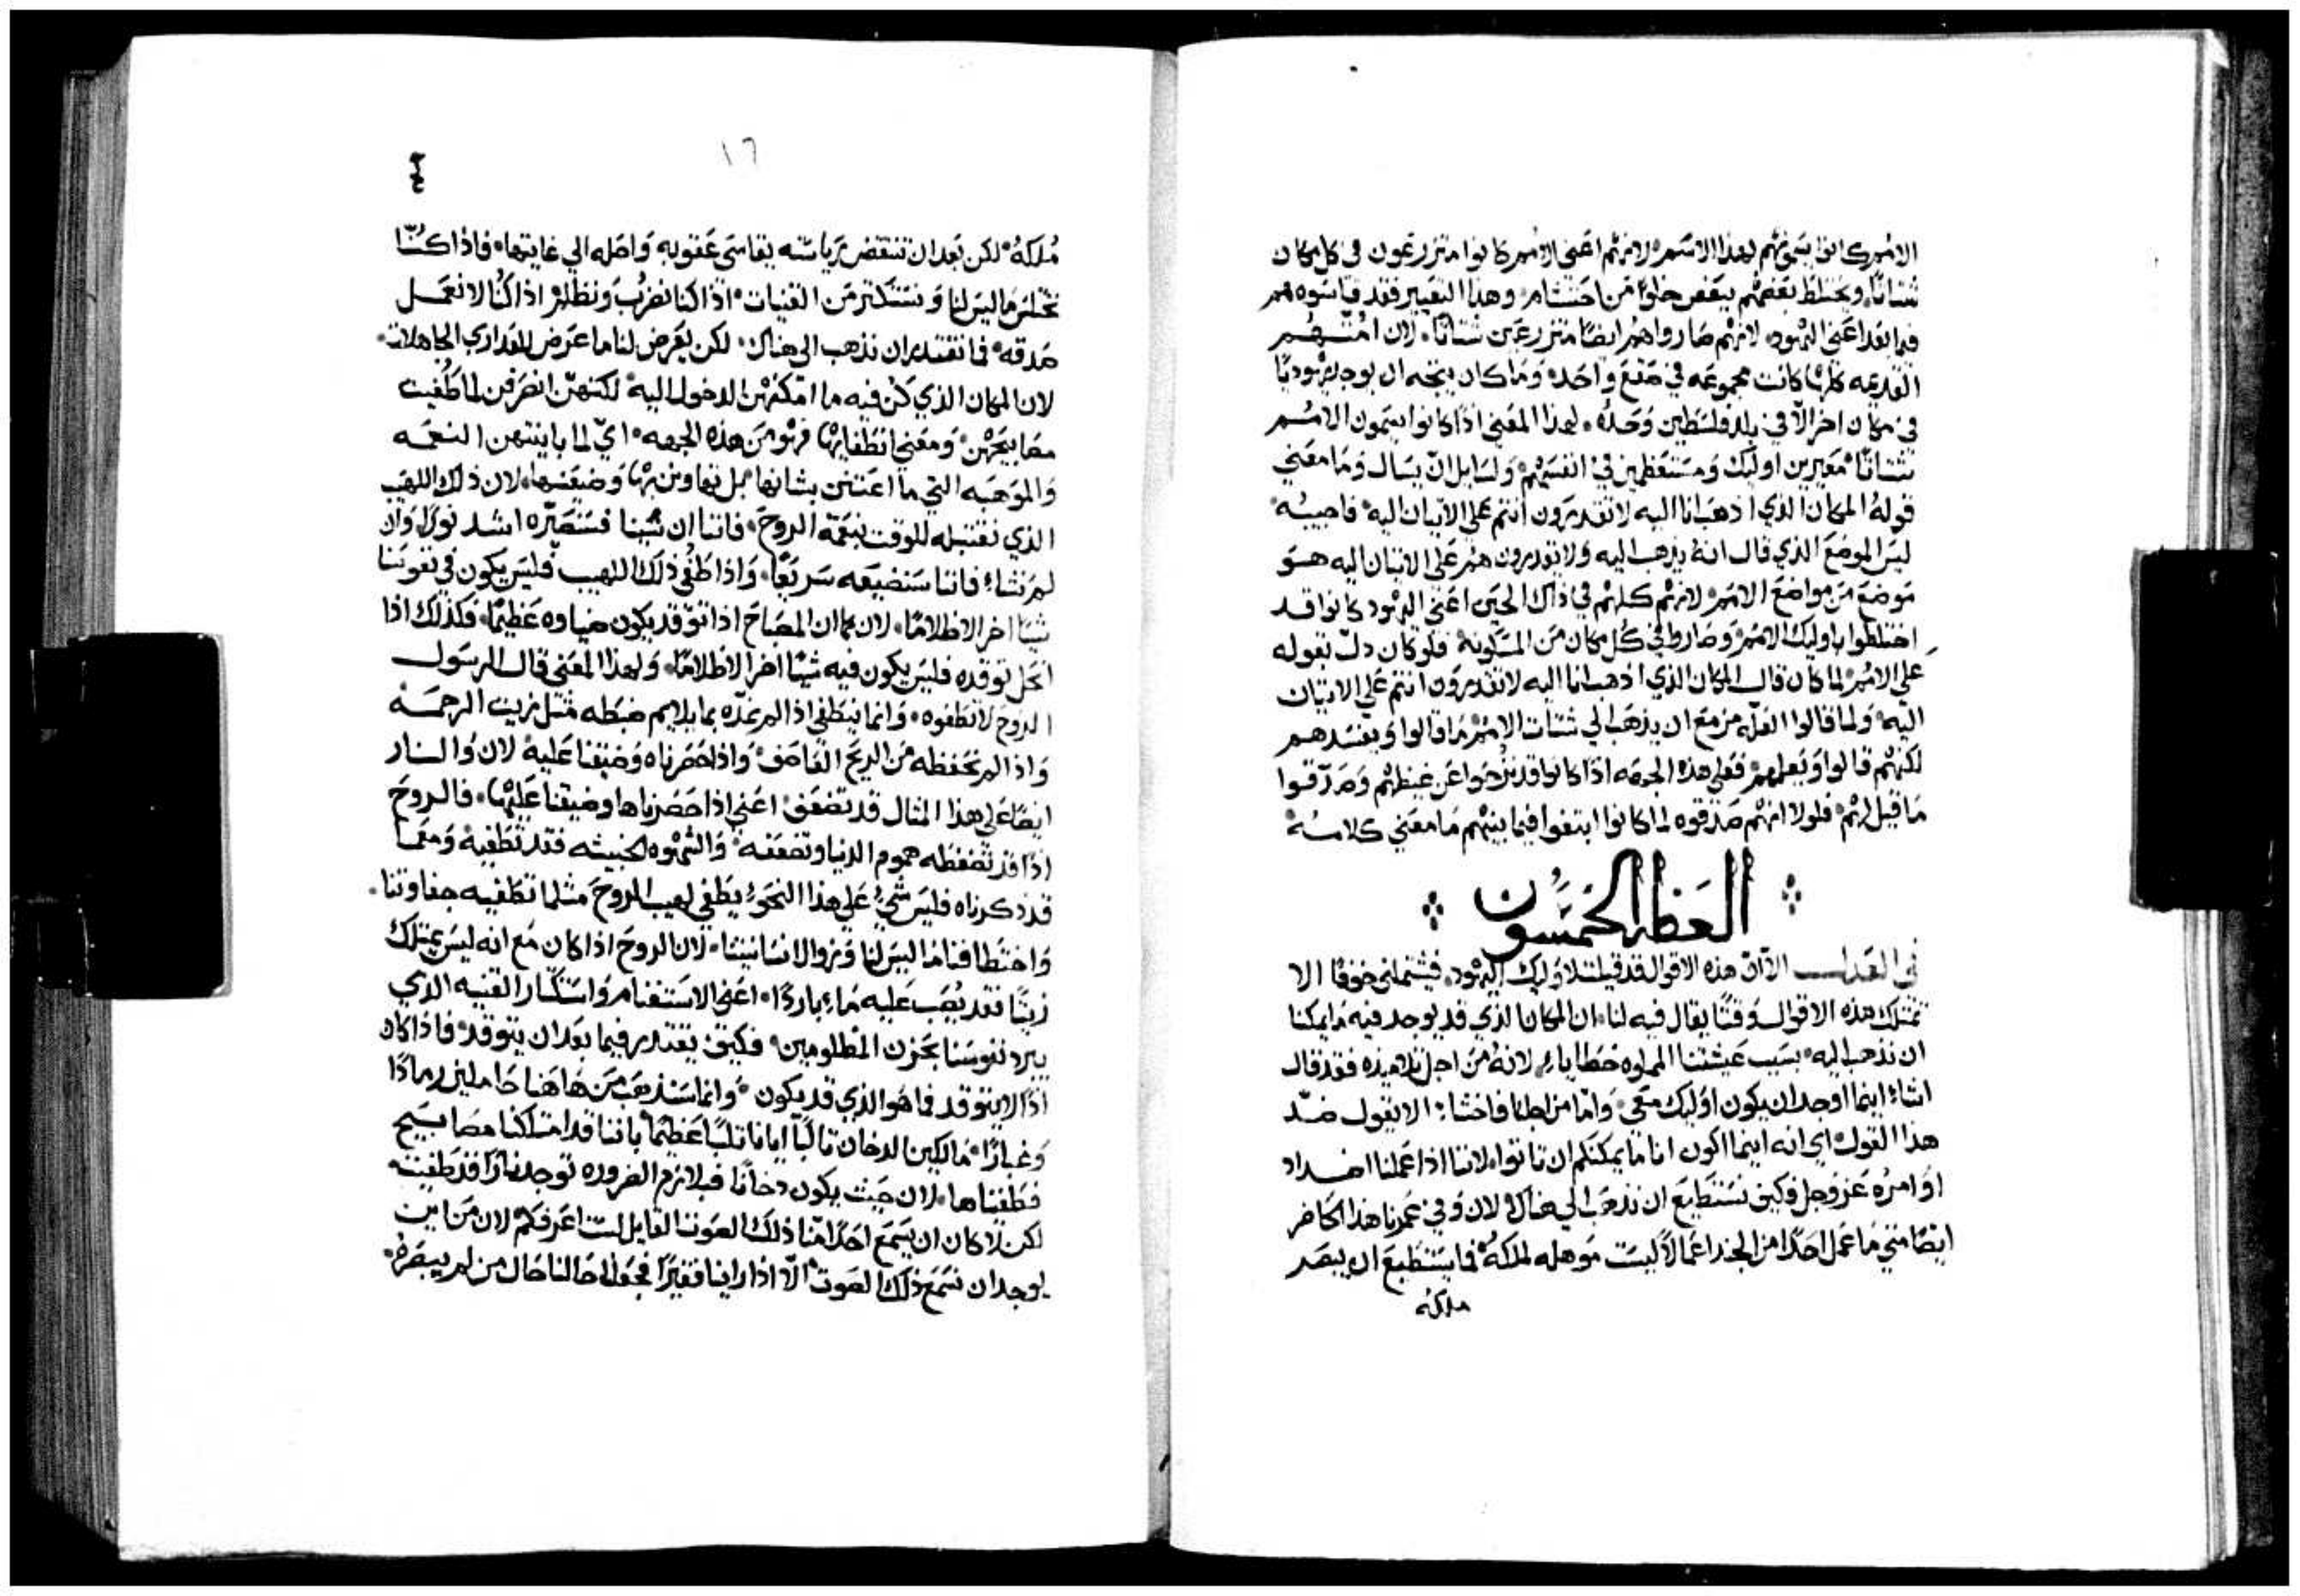 الامم كانوا يسمونهم بهذا الاسم لانهم اعني الامم كانوا متزرعون في كل مكان
شتاتًا ويختلط بعضهم ببعض خلوًا من احتشام وهذا التعيير فقد قاسوه هم
فيما بعد اعني اليهود لانهم صاروا هم ايضًا متزرعين شتاتًا لان امتهم
القديمه كلها كانت مجموعه في صقع واحد وما كان يتجه ان يوجد يهوديًا
في مكان اخر الا في بلد فلسطين وحده لهذا المعني اذًا كانوا يسمون الامم
شتاتًا معيرين اوليك ومستعظمين في انفسهم ولسايل ان يسال وما معني
قوله المكان الذي اذهب انا اليه لا تقدرون انتم علي الاتيان اليه فاجيبه
ليس الموضع الذي قال انه يذهب اليه ولا يقدرون هم علي الاتيان اليه هو
موضع من مواضع الامم لانهم كلهم في ذاك الحين اعني اليهود كانوا قد
اختلطوا باوليك الامم وصاروا في كل مكان من المسكونه فلو كان دل بقوله
علي الامم لما كان قال المكان الذي اذهب انا اليه لا تقدرون انتم علي الاتيان
اليه ولما قالوا العله مزمع ان يذهب الي شتات الامم ما قالوا ويفسدهم
لكنهم قالوا ويعلمهم فعلي هذه الجهه اذًا كانوا قد نزحوا عن غيظهم وصدقوا
ما قيل لهم فلولا انهم صدقوه لما كانوا ابتغوا فيما بينهم ما معني كلامه
العظه الخمسون
في العذاب الا ان هذه الاقوال قد قيلت لاوليك اليهود فيشتملني خوفًا الا
تمتلك هذه الاقوال وقتًا يقال فيه لنا ان المكان الذي قد يوجد فيه ما يمكنا
ان نذهب اليه بسبب عيشتنا المملوه خطايا لانه من اجل تلاميذه فقد قال
اشاء اينما اوجد ان يكون اوليك معي واما من اجلنا فاخشا الا يقول ضد
هذا القول اي انه اينما اكون انا ما يمكنكم ان تاتوا لاننا اذا عملنا اضداد
اوامره عز وجل فكيف نستطيع ان نذهب الي هناك لان وفي عمرنا هذا الحاضر
ايضًا متي ما عمل احدًا من الجند اعمالاً ليست موهله لملكه فما يستطيع ان يبصر
ملكه
١٦
ملكه لكن بعد ان تنتقض رياسته يقاسي عقوبه واصله الي غايتها فاذا كنا
نختلس ما ليس لنا ونستكثر من القنيات اذا كنا نضرب ونظلم اذا كنا لا نعمل
صدقه فما نقتدر ان نذهب الي هناك لكن يعرض لنا ما عرض للعذاري الجاهلات
لان المكان الذي كن فيه ما امكنهن الدخول اليه لكنهن انصرفن لما طفيت
مصابيحهن ومعني انطفايها فهو من هذه الجهه اي لما باينتهن النعمه
والموهبه التي ما اعتنين بشانها بل تهاونن بها وضيعنها لان ذلك اللهيب
الذي نقتبله للوقت بنعمة الروح فاننا ان شينا فسنصيره اشد نورًا وان
لم نشاء فاننا سنضيعه سريعًا واذا طفي ذلك اللهيب فليس يكون في نفوسنا
شيًا اخر الا ظلامًا لان كما ان المصباح اذا توقد يكون ضياوه عظيمًا فكذلك اذا
انحل توقده فليس يكون فيه شيًا اخر الا ظلامًا ولهذا المعني قال الرسول
الروح لا تطفوه وانما ينطفي اذا لم نمده بما يلايم ضبطه مثل زيت الرحمه
واذا لم نحفظه من الريح العاصف واذا حصرناه وضيقنا عليه لان والنار
ايضًا علي هذا المثال قد تضعف اعني اذا حصرناها وضيقنا عليها فالروح
اذًا قد تضغطه هموم الدنيا وتضعفه والشهوه الخبيثه فقد تطفيه ومع ما
قد ذكرناه فليس شيء علي هذا النحو يطفي لهيب الروح مثلما تطفيه جفاوتنا
واختطافنا ما ليس لنا وزوال انسانيتنا لان الروح اذا كان مع انه ليس يمتلك
زيتًا فقد يصب عليه ماء باردًا اعني الاستغنام واستكثار القنيه الذي
يبرد نفوسنا بحزن المظلومين فكيف يقتدر فيما بعد ان يتوقد فاذا كان
اذًا لا يتوقد فما هو الذي قد يكون وانما سنذهب من هاهنا حاملين رمادًا
وغبارًا مالكين الدخان ثالبًا ايانا ثلبًا عظيمًا باننا قد امتلكنا مصابيح
فطفيناها لان حيث يكون دخانًا فبلازم الضروره توجد نارًا قد طفيت
لكن لا كان ان يسمع احدًا منا ذلك الصوت القايل لست اعرفكم لان من اين
يوجد ان نسمع ذلك الصوت الا اذا راينا فقيرًا فجعلنا حالنا حال من لم يبصره